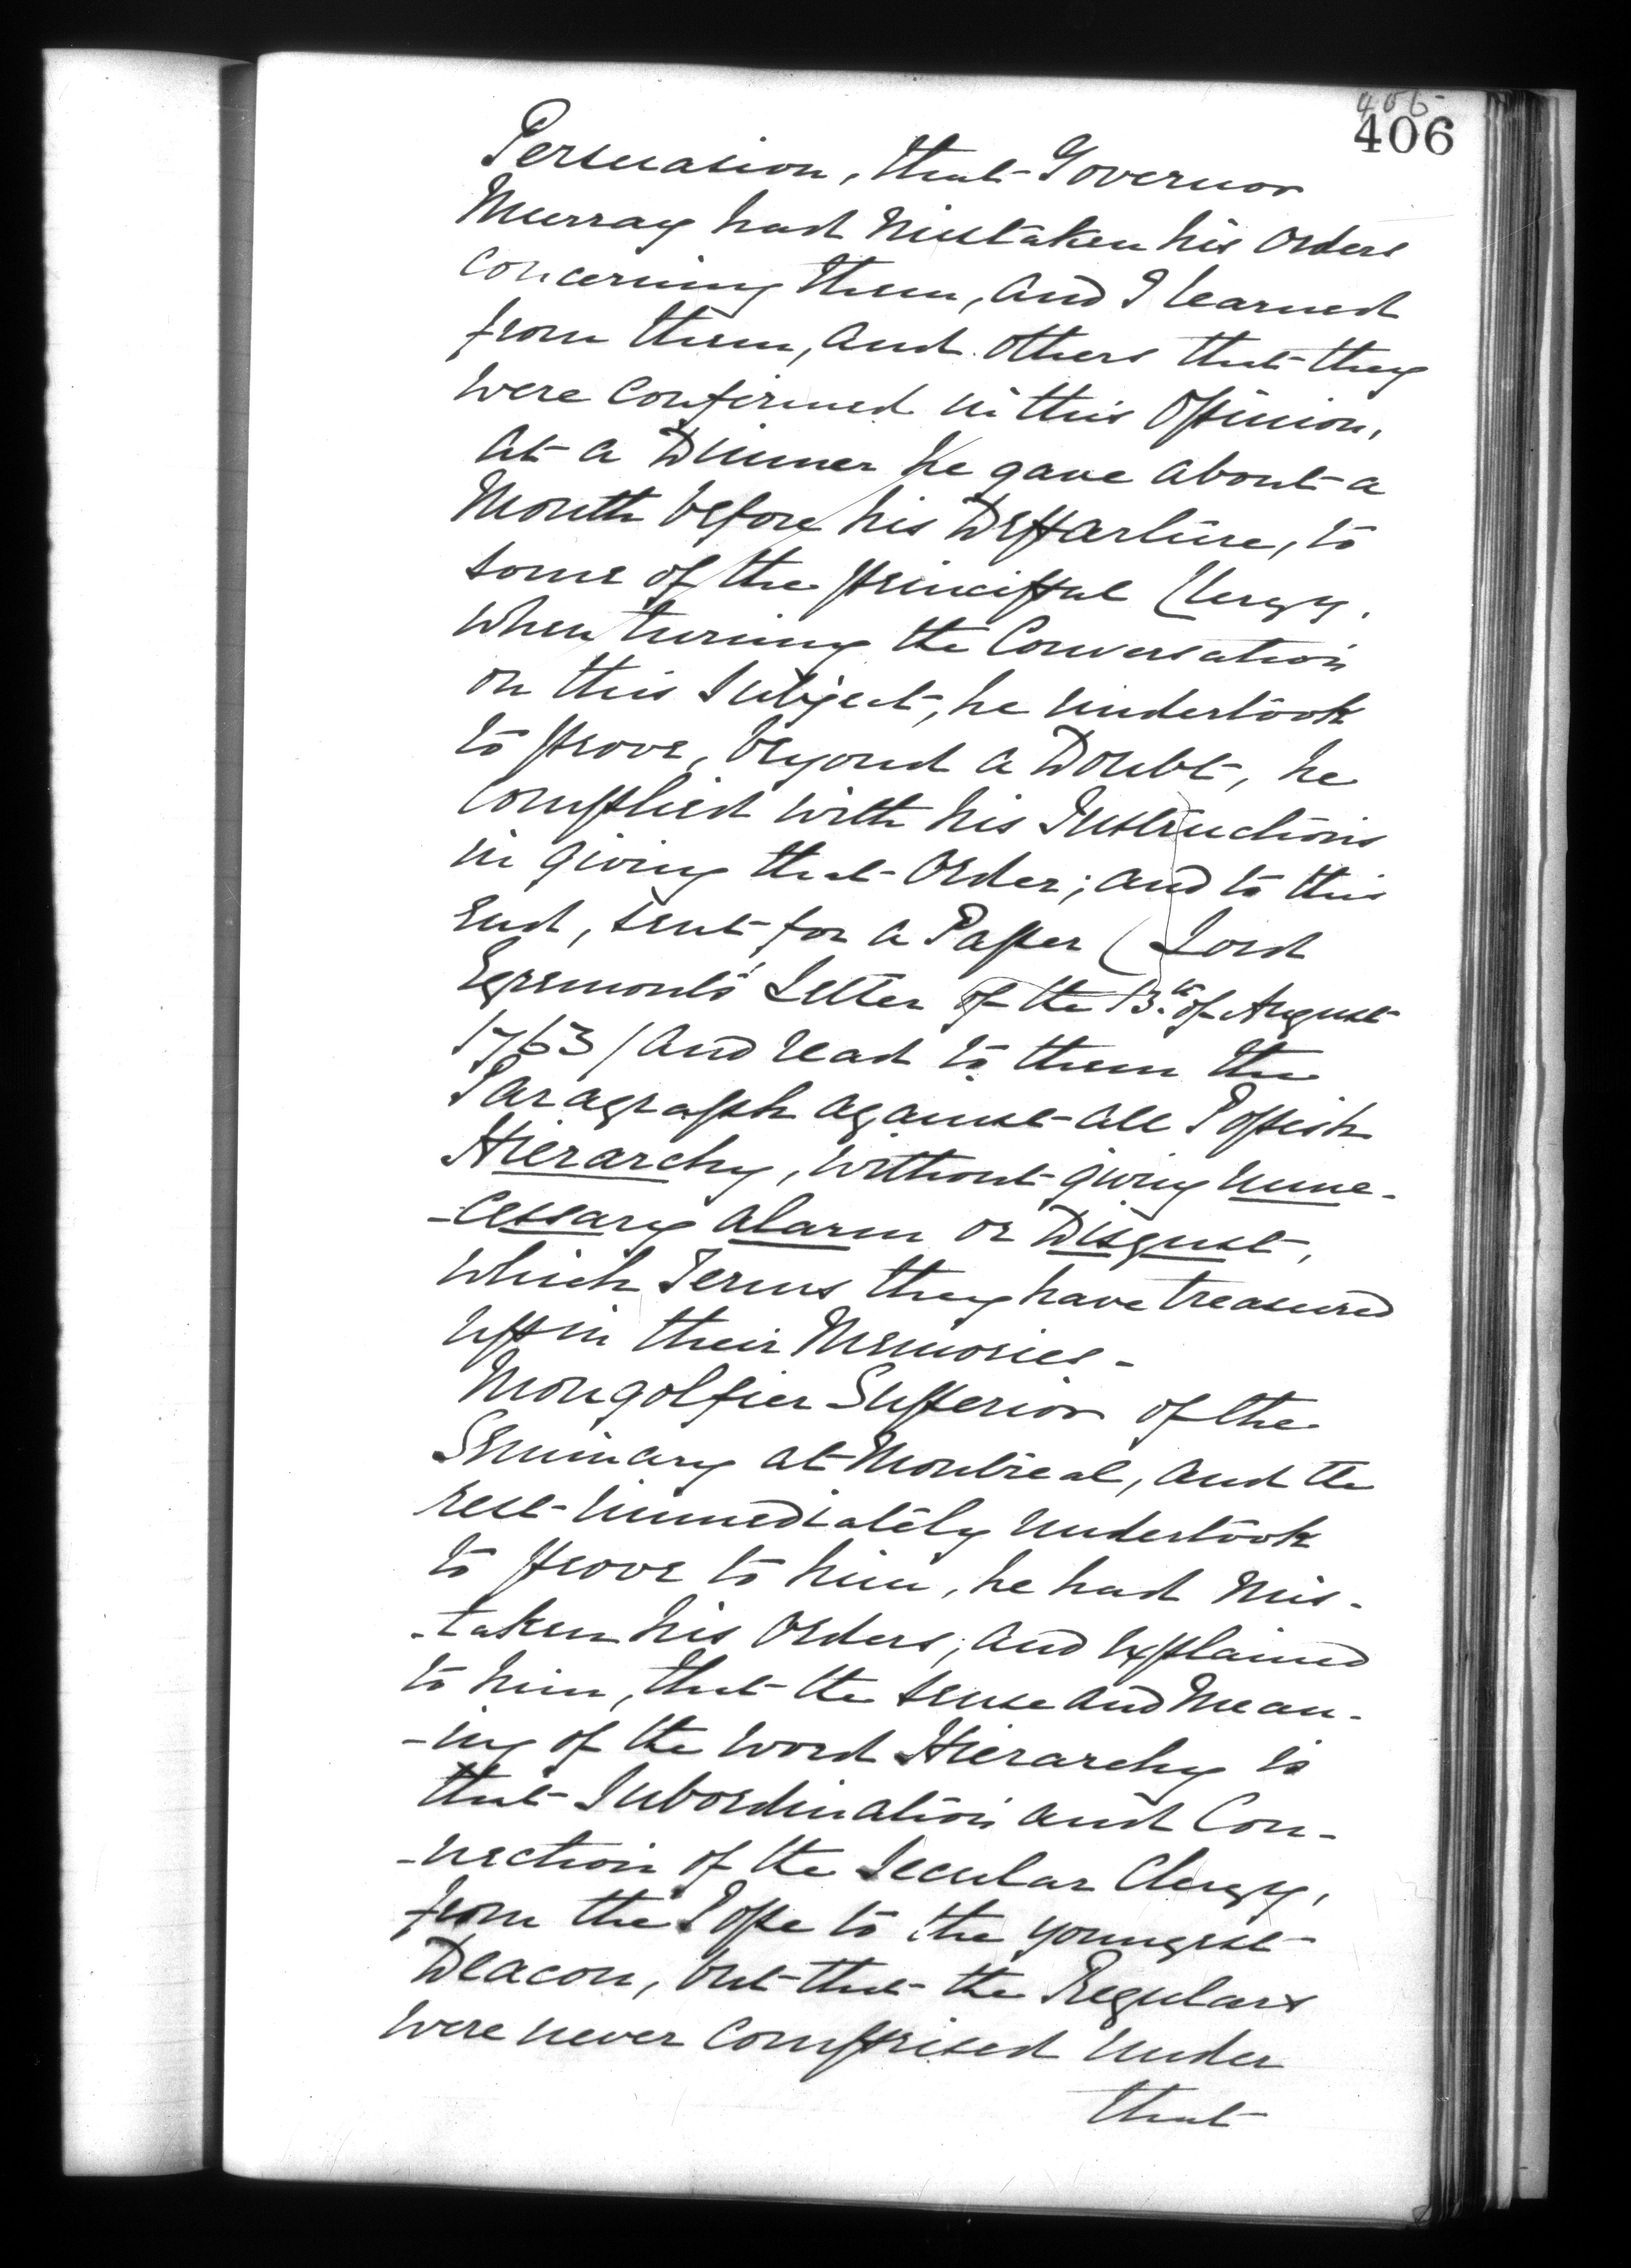 405
406
Persuasion, that Governor
Murray had Mistaken his Orders
concerning them, and I learned
from them, and others that they
were confirmed in this Opinion,
at a Dinner he gave about a
Month before his Departure, to
some of the principal Clergy,
when turning the Conversation
on this Subject, he undertook
to prove, beyond a Doubt, he
complied with his Instructions
in giving that Order; and to this
End, sent for a Paper (Lord
Egremont's Letter of the 13th. of August
1763/ and read to them the
Paragraph against all Popish
Hierarchy, without giving unne-
-cessary alarm or Disgust,
which Terms they have treasured
up in their Memories -
Mongolfier Superior of the
Seminary at Montreal, and the
rest immediately undertook
to prove to him, he had mis-
-taken his Orders, and explained
to him, that the sense and Mean-
-ing of the word Hierarchy is
that Subordination and Con-
-nection of the Secular Clergy,
from the Pope to the youngest
Deacon, but that the Regulars
were never comprised under
that